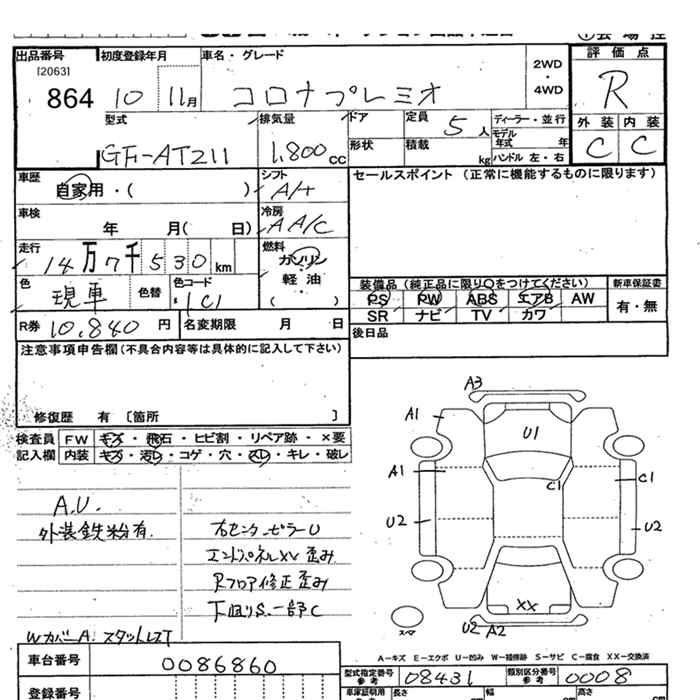 出品番号 初度登録年月 車名・グレード 2WD・4WD 評価点
[2063]
864 10 11月 コロナプレミオ R
型式 排気量 ドア 定員 5人 ディーラー・並行 外装 内装
GF-AT211 1,800cc 形状 積載 kg モデル年式 年 C C
ハンドル 左・右
車歴 シフト セールスポイント (正常に機能するものに限ります)
自家用・( ) A/T
車検 冷房
年 月( 日) AAC
走行 燃料
14万7千530km ガソリン・軽油
( )
色 現車 色替 色コード 1C1
装備品 (純正品に限り○をつけてください) 新車保証書
PS PW ABS エアB AW 有・無
SR ナビ TV カワ
R券 10,840円 名変期限 月 日 後日品
注意事項申告欄(不具合内容等は具体的に記入して下さい)
修復歴 有 [箇所 ]
検査員 FW キズ・飛石・ヒビ割・リペア跡・×要
記入欄 内装 キズ・汚レ・コゲ・穴・スレ・キレ・破レ
A.U.
外装鉄粉有
右センターピラーU
エンドパネルXV歪み
Rフロア修正歪み
下廻りS.一部C
WカバーA スタットレスT
A3
A1
U1
A1
C1
C1
U2
U2
XX
スペア
U2 A2
A-キズ E-エクボ U-凹み W-補修跡 S-サビ C-腐食 XX-交換済
車台番号 0086860
型式指定番号 参考 08431 類別区分番号 参考 0008
登録番号
車庫証明用 長さ cm 幅 cm 高さ cm